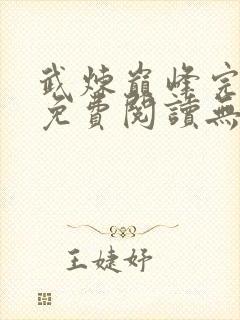 武煉巔峰完
免費閱讀無
王婕妤